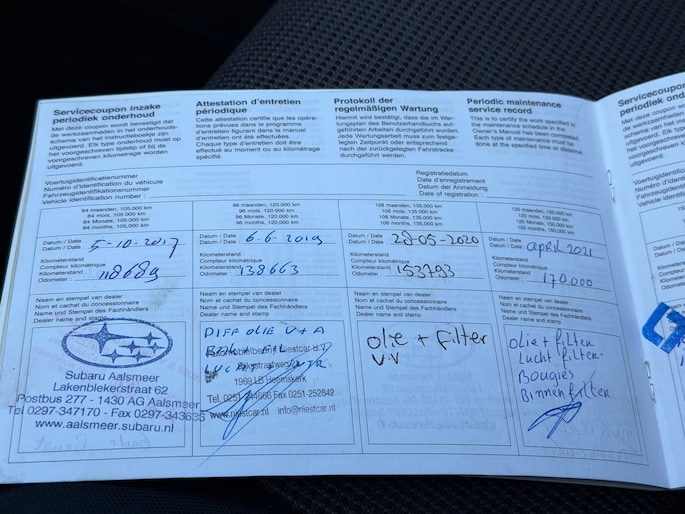 Servicecoupon inzake
periodiek onderhoud
Met deze coupon wordt bevestigd dat
de werkzaamheden in het onderhouds-
schema van het instructieboekje zijn
uitgevoerd. Elk type onderhoud moet op
het voorgeschreven tijdstip of bij de
voorgeschreven kilometrage worden
uitgevoerd.
Attestation d'entretien
périodique
Cette attestation certifie que les opéra-
tions prévues dans le programme
d'entretien figurant dans le manuel
d'entretien ont été effectuées.
Chaque type d'entretien doit être
effectué au moment ou au kilométrage
spécifié.
Protokoll der
regelmäßigen Wartung
Hiermit wird bestätigt, dass die im War-
tungsplan des Benutzerhandbuchs auf-
geführten Arbeiten durchgeführt wurden.
Jede Wartungsarbeit muss zum festge-
legten Zeitpunkt oder entsprechend
nach der zurückgelegten Fahrstrecke
durchgeführt werden.
Periodic maintenance
service record
This is to certify the work specified in
the maintenance schedule in the
Owner's Manual has been completed.
Each type of maintenance must be
done at the specified time or distance.
Voertuigidentificatienummer
Numéro d'identification du véhicule
Fahrzeugidentifikationsnummer
Vehicle identification number :
Registratiedatum
Date d'enregistrement
Datum der Anmeldung
Date of registration :
84 maanden, 105.000 km
84 mois, 105.000 km
84 Monate, 105.000 km
84 months, 105.000 km
Datum / Date
Datum / Date
5-10-2017
Kilometerstand
Compteur kilométrique
Kilometerstand
Odometer :
118689
Naam en stempel van dealer
Nom et cachet du concessionnaire
Name und Stempel des Fachhändlers
Dealer name and stamp
SUBARU
Subaru Aalsmeer
Lakenblekerstraat 62
Postbus 277 - 1430 AG Aalsmeer
Tel 0297-347170 - Fax 0297-343635
www.aalsmeer.subaru.nl
96 maanden, 120.000 km
96 mois, 120.000 km
96 Monate, 120.000 km
96 months, 120.000 km
Datum / Date
Datum / Date
6-6-2019
Kilometerstand
Compteur kilométrique
Kilometerstand
Odometer :
138663
Naam en stempel van dealer
Nom et cachet du concessionnaire
Name und Stempel des Fachhändlers
Dealer name and stamp
DIFF OLIE V+A
Automobielbedrijf Niestcar B.V.
1969 LB Heemskerk
Tel. 0251-244666 Fax 0251-252842
www.niestcar.nl info@niestcar.nl
108 maanden, 135.000 km
108 mois, 135.000 km
108 Monate, 135.000 km
108 months, 135.000 km
Datum / Date
Datum / Date
28-05-2020
Kilometerstand
Compteur kilométrique
Kilometerstand
Odometer :
153793
Naam en stempel van dealer
Nom et cachet du concessionnaire
Name und Stempel des Fachhändlers
Dealer name and stamp
olie + filter
V.V
120 maanden, 150.000 km
120 mois, 150.000 km
120 Monate, 150.000 km
120 months, 150.000 km
Datum / Date
Datum / Date
april 2021
Kilometerstand
Compteur kilométrique
Kilometerstand
Odometer :
170.000
Naam en stempel van dealer
Nom et cachet du concessionnaire
Name und Stempel des Fachhändlers
Dealer name and stamp
olie + filter
Lucht filter
Bougies
Binnen filter
Servicecoupon
periodiek onder